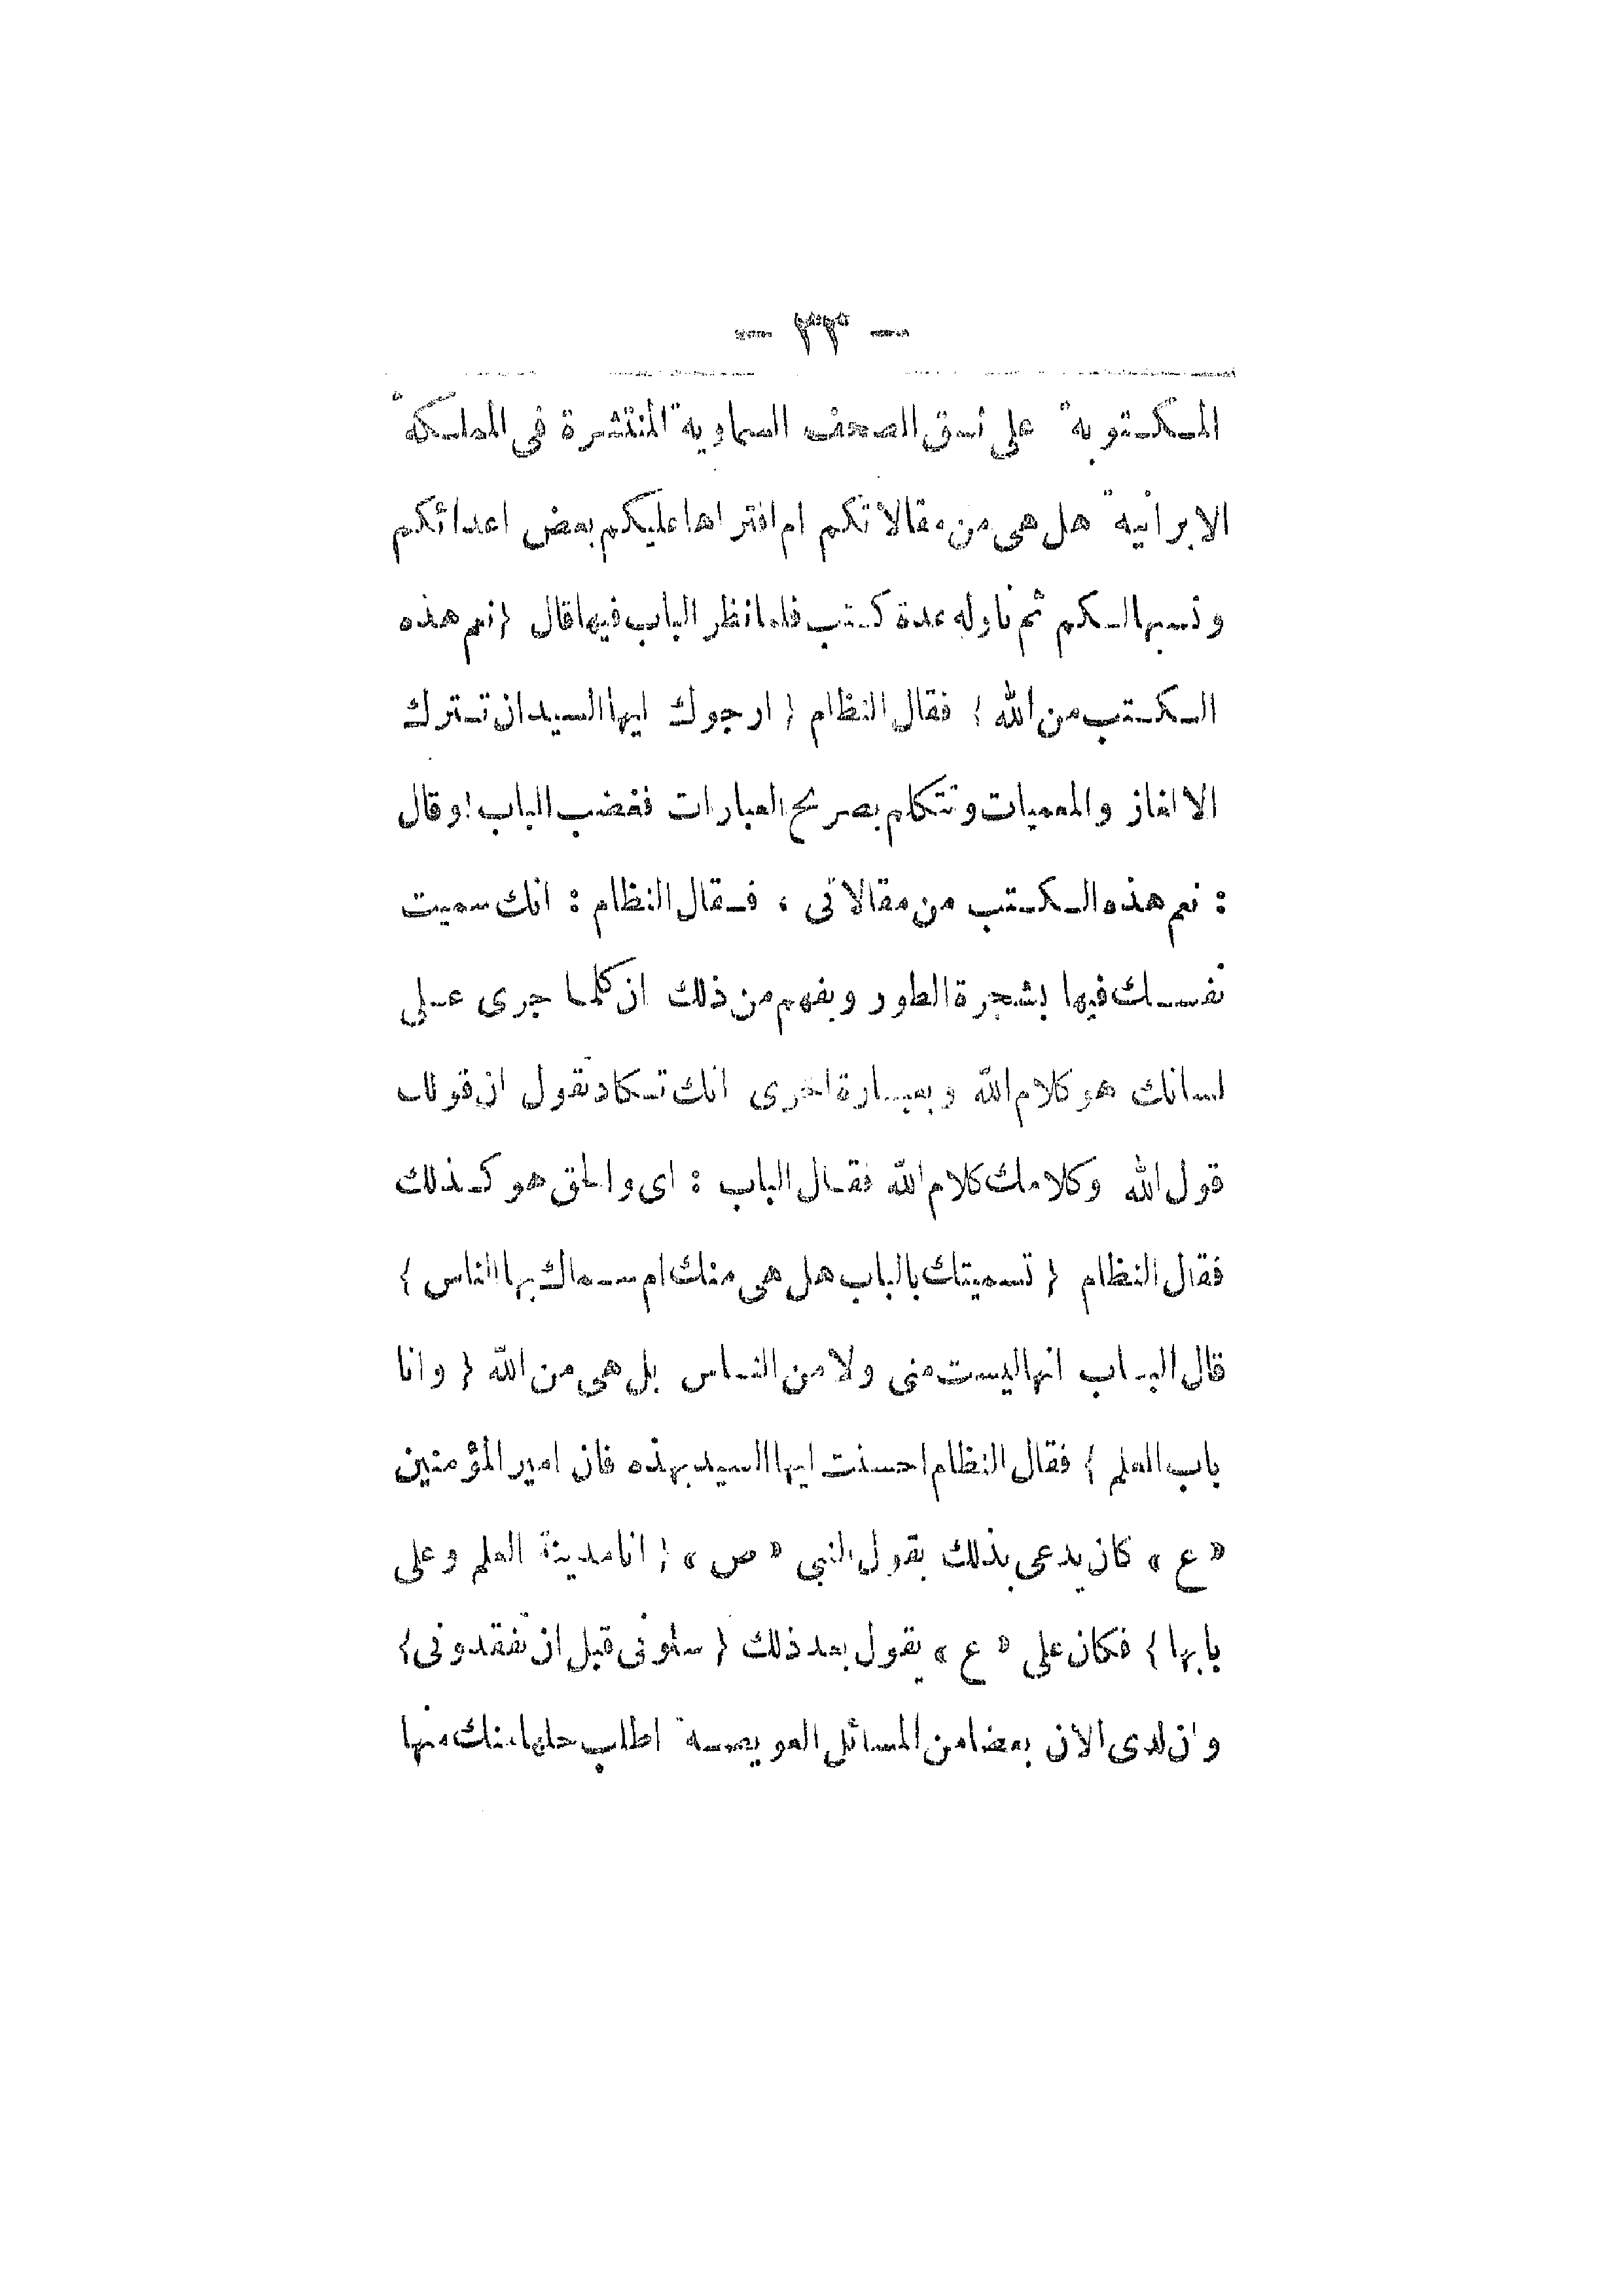 — ٣٣ —
المكتوبة على نسق الصحف السماوية المنتشرة فى المملكة
الايرانية هل هى من مقالاتكم ام افتراها عليكم بعض اعدائكم
ونسبها اليكم ثم ناوله عدة كتب فلما نظر الباب فيها قال { نعم هذه
الكتب من الله } فقال النظام { ارجوك ايها السيد ان تترك
الالغاز والمعميات وتتكلم بصريح العبارات فغضب الباب وقال
: نعم هذه الكتب من مقالاتى ، فقال النظام : انك سميت
نفسك فيها بشجرة الطور ويفهم من ذلك ان كلما جرى على
لسانك هو كلام الله وبعبارة اخرى انك تكاد تقول ان قولك
قول الله وكلامك كلام الله فقال الباب : اى والحق هو كذلك
فقال النظام { تسميتك بالباب هل هى منك ام سماك بها الناس }
قال الباب انها ليست منى ولا من الناس بل هى من الله { وانا
باب العلم } فقال النظام احسنت ايها السيد بهذه فان امير المؤمنين
« ع » كان يدعى بذلك بقول النبي « ص » { انا مدينة العلم وعلى
بابها } فكان على « ع » يقول بعد ذلك { سلونى قبل ان تفقدونى }
وان لدى الان بعضا من المسائل العويصة اطلب حلها منك منها